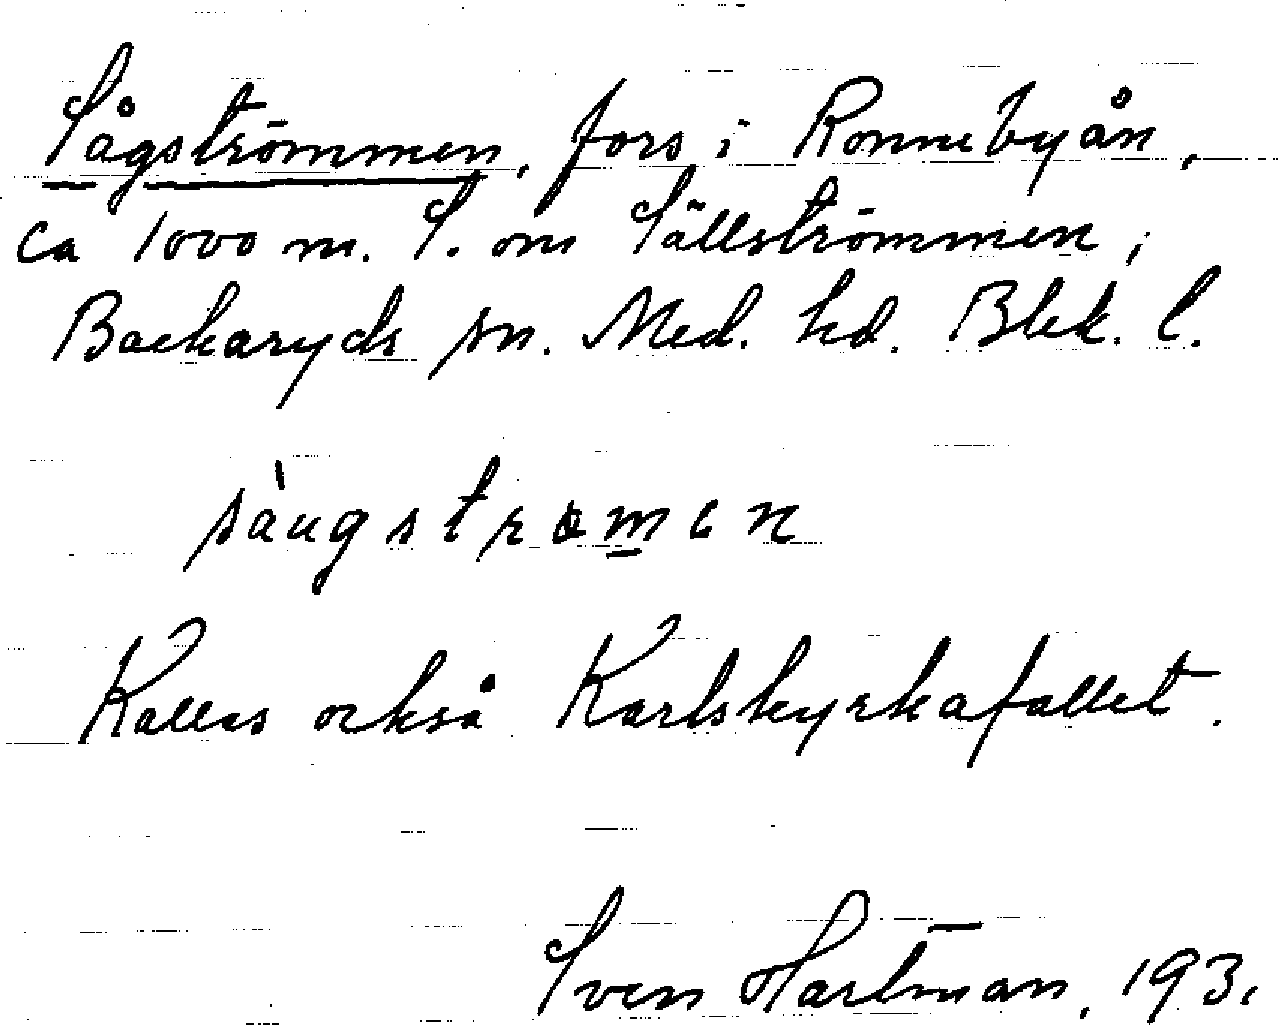 Sågströmmen, fors i Ronnebyån,
ca 1000 m. S. om Sällströmmen,
Backaryds sn. Med. hd. Blek. l.
sàugströmen
Kallas också Karlskyrkafallet.
Sven Hartman, 193.